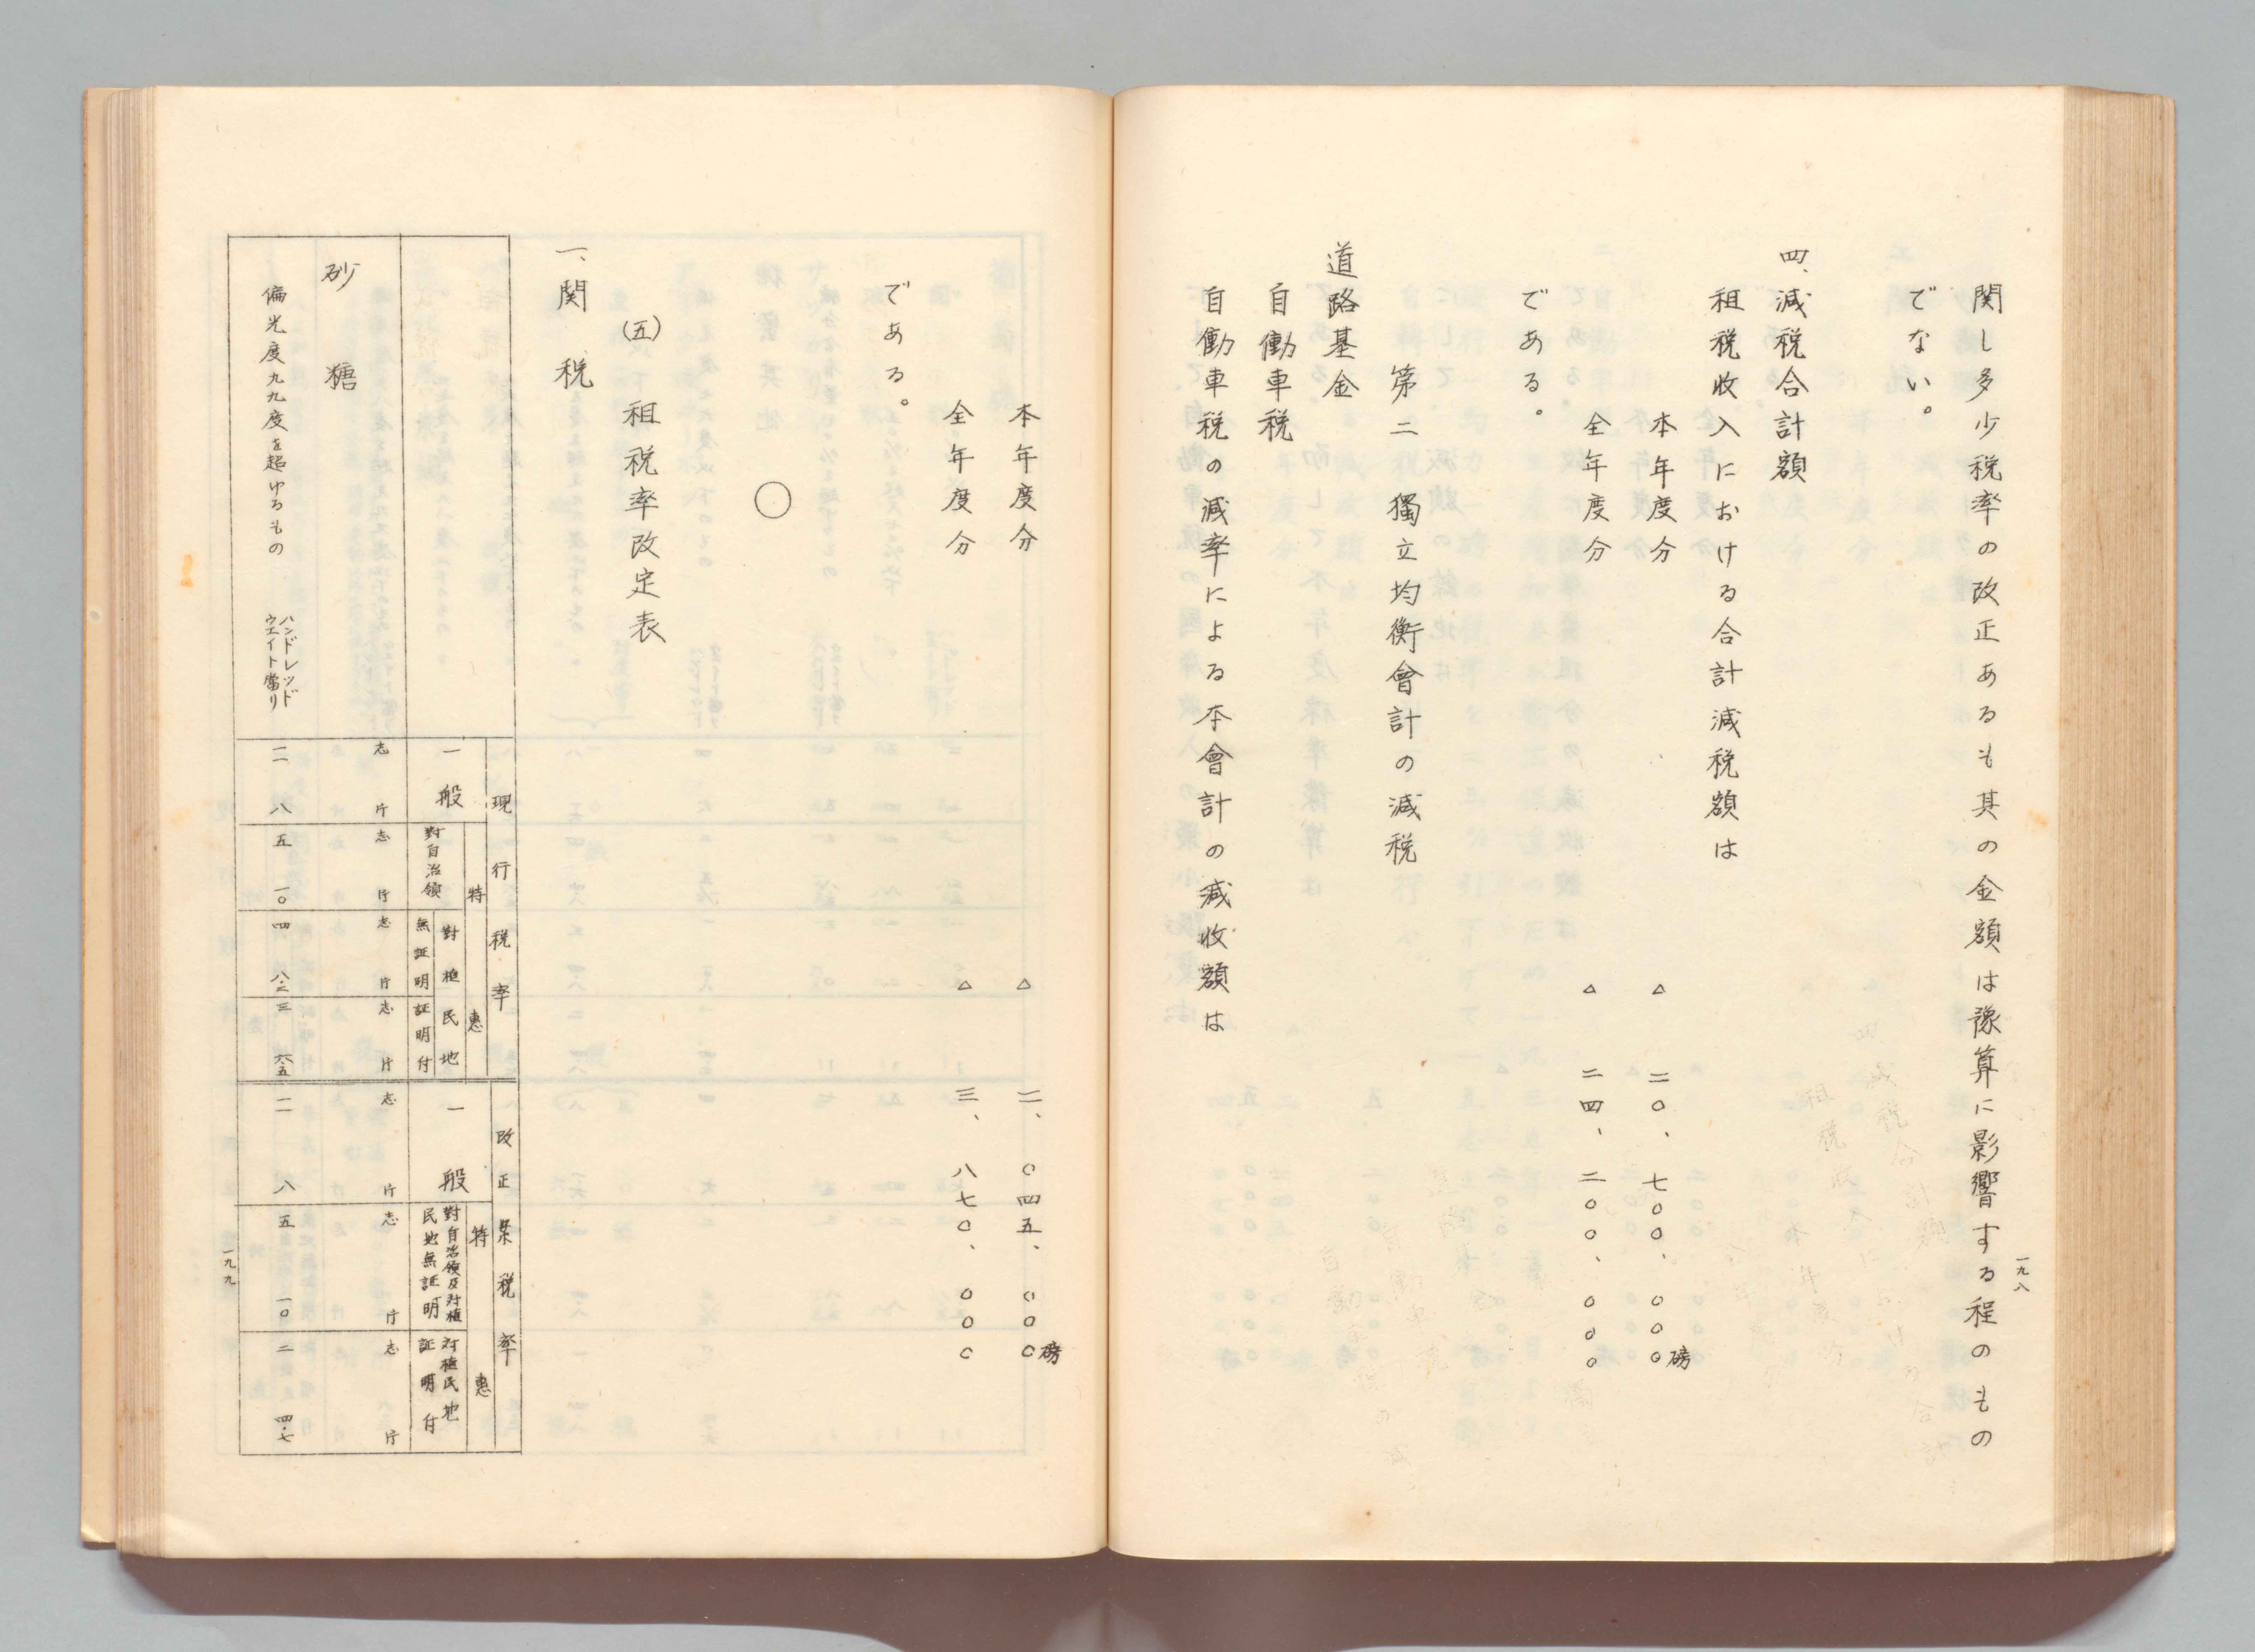 関し多少税率の改正あるも其の金額は豫算に影響する程のもの
でない。
四、減税合計額
租税收入における合計減税額は
本年度分 △ 二〇、七〇〇、〇〇〇磅
全年度分 △ 二四、二〇〇、〇〇〇
である。
第二 獨立均衡會計の減税
道路基金
自働車税
自働車税の減率による本會計の減收額は
一九八
本年度分 △ 二、〇四五、〇〇〇磅
全年度分 △ 三、八七〇、〇〇〇
である。
〇
(五) 租税率改定表
一、関税
現行税率
一般
特惠
對自治領
對植民地
無証明
証明付
改正案税率
一般
特惠
對自治領及対植民地無証明
対植民地証明付
砂糖
志 片 志 片 志 片 志 片 志 片 志 片 志 片
偏光度九九度を超ゆるもの ハンドレッドウエイト當り 一一 八 五 一〇 四 八・二 三 六・五 一一 八 五 一〇 二 四・七
一九九